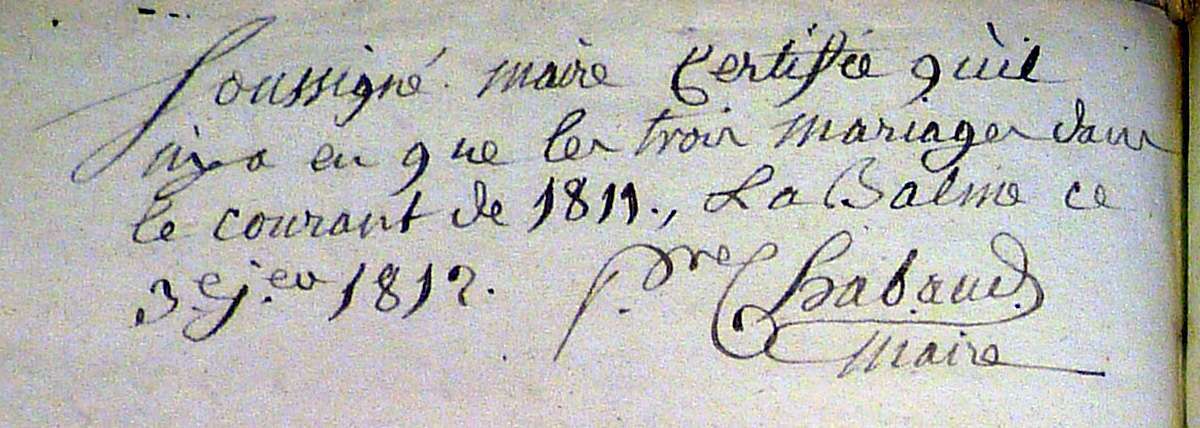 Soussigné maire Certifie qu'il
n'i a eu que les trois mariages dans
le courant de 1811., La Balme ce
3e j.er 1812. P.re Chabaud
maire